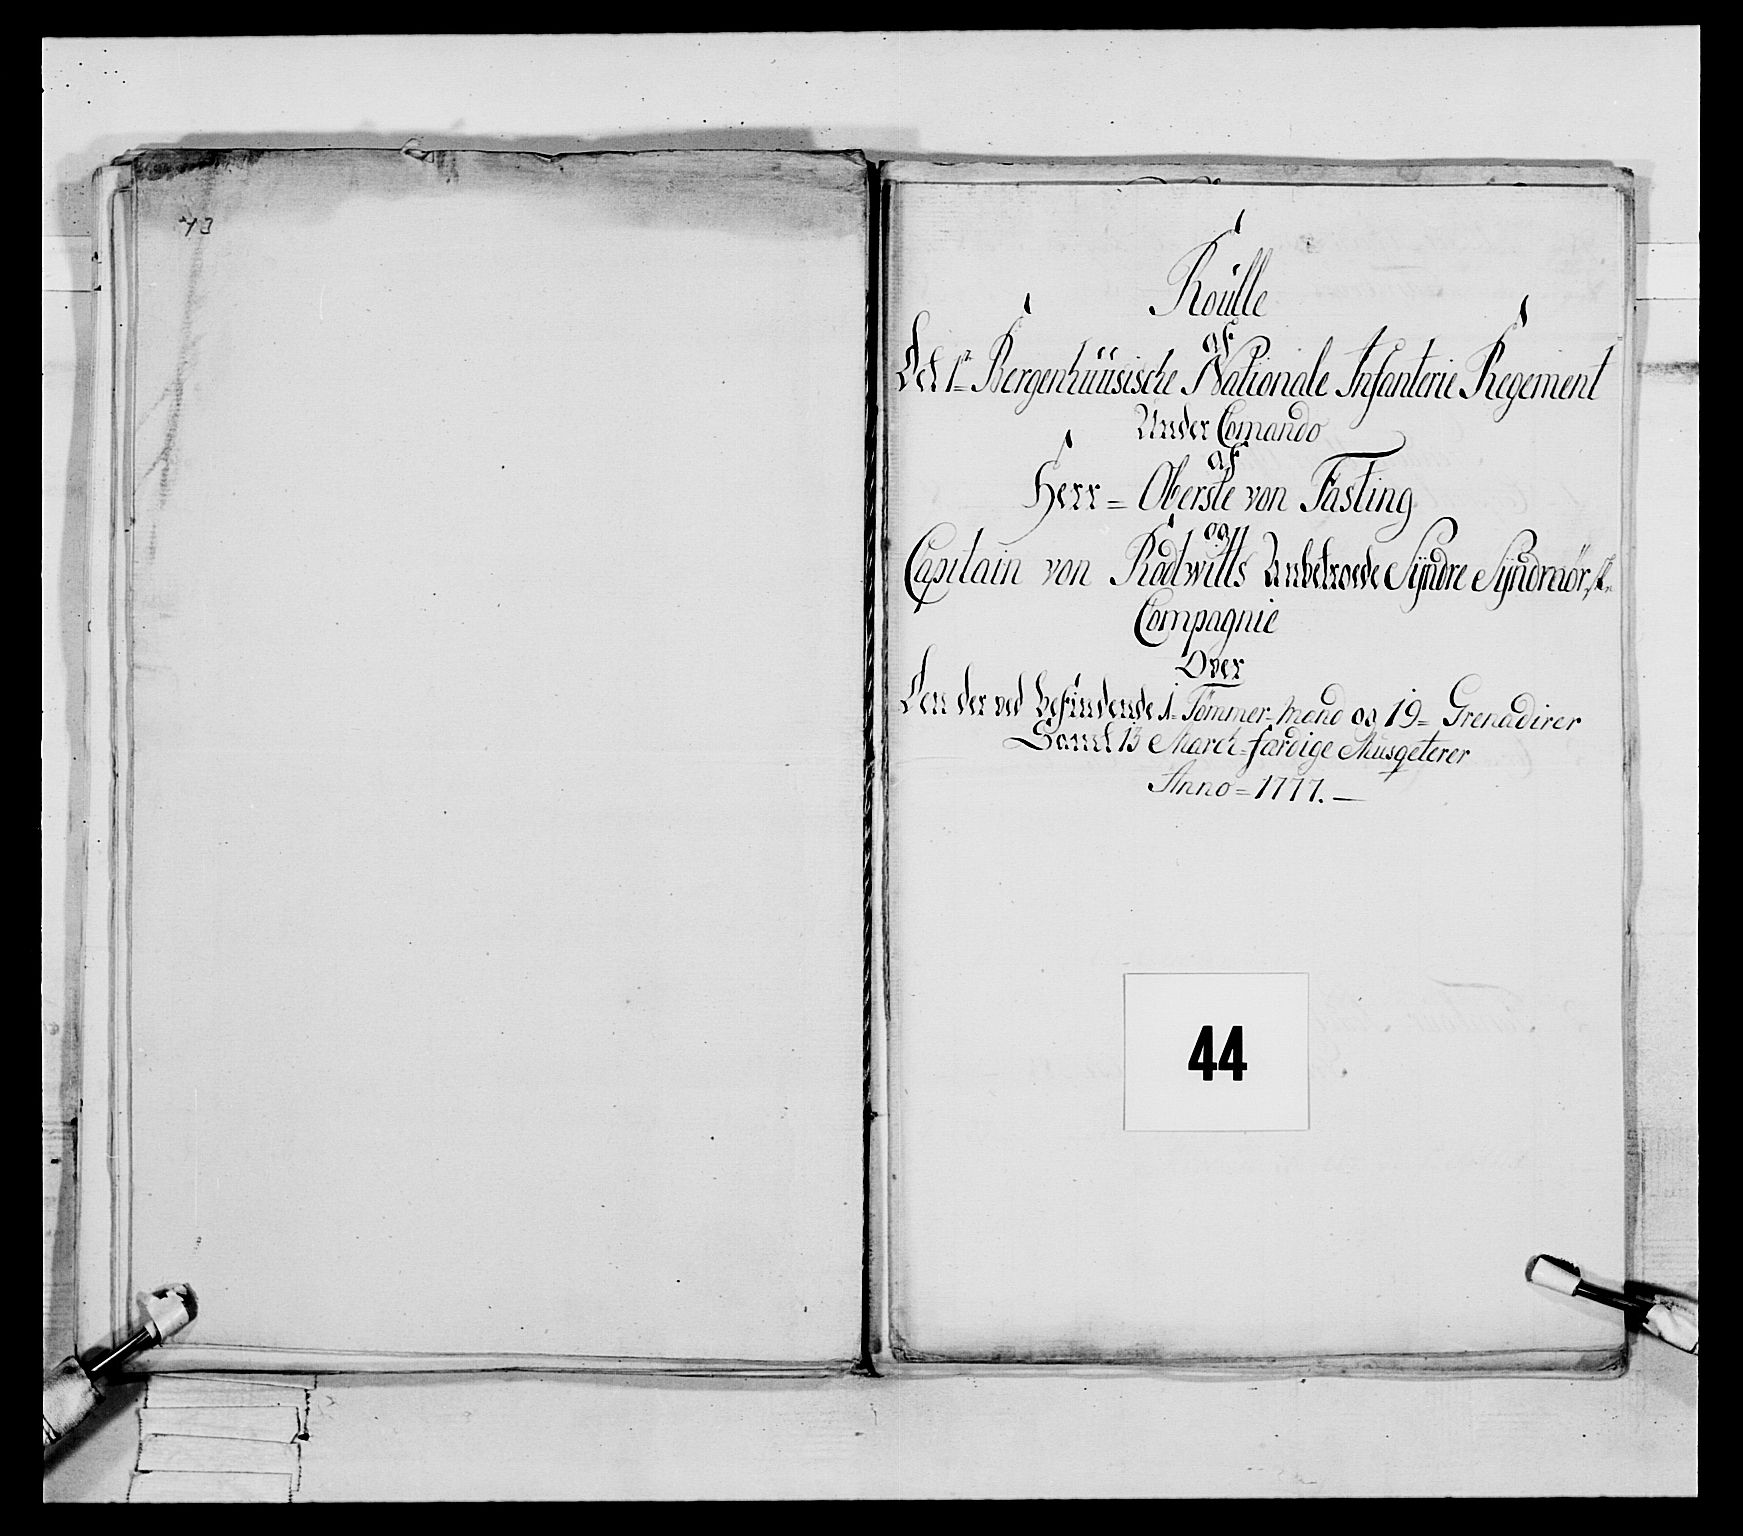 43
Roülle
af
Det 1ste Bergenhüüsische Nationale Infanterie Regement
Under Comando
af
Herr = Oberste von Fasting
og
Capitain von Rodwitts Anbetroede Syndre Syndmörske
Compagnie
Over
Den der ved befindende 1= Tömmer=mand og 19= Grenadirer
Samt 13 March=færdige Musqeterer
Anno = 1777. —
44